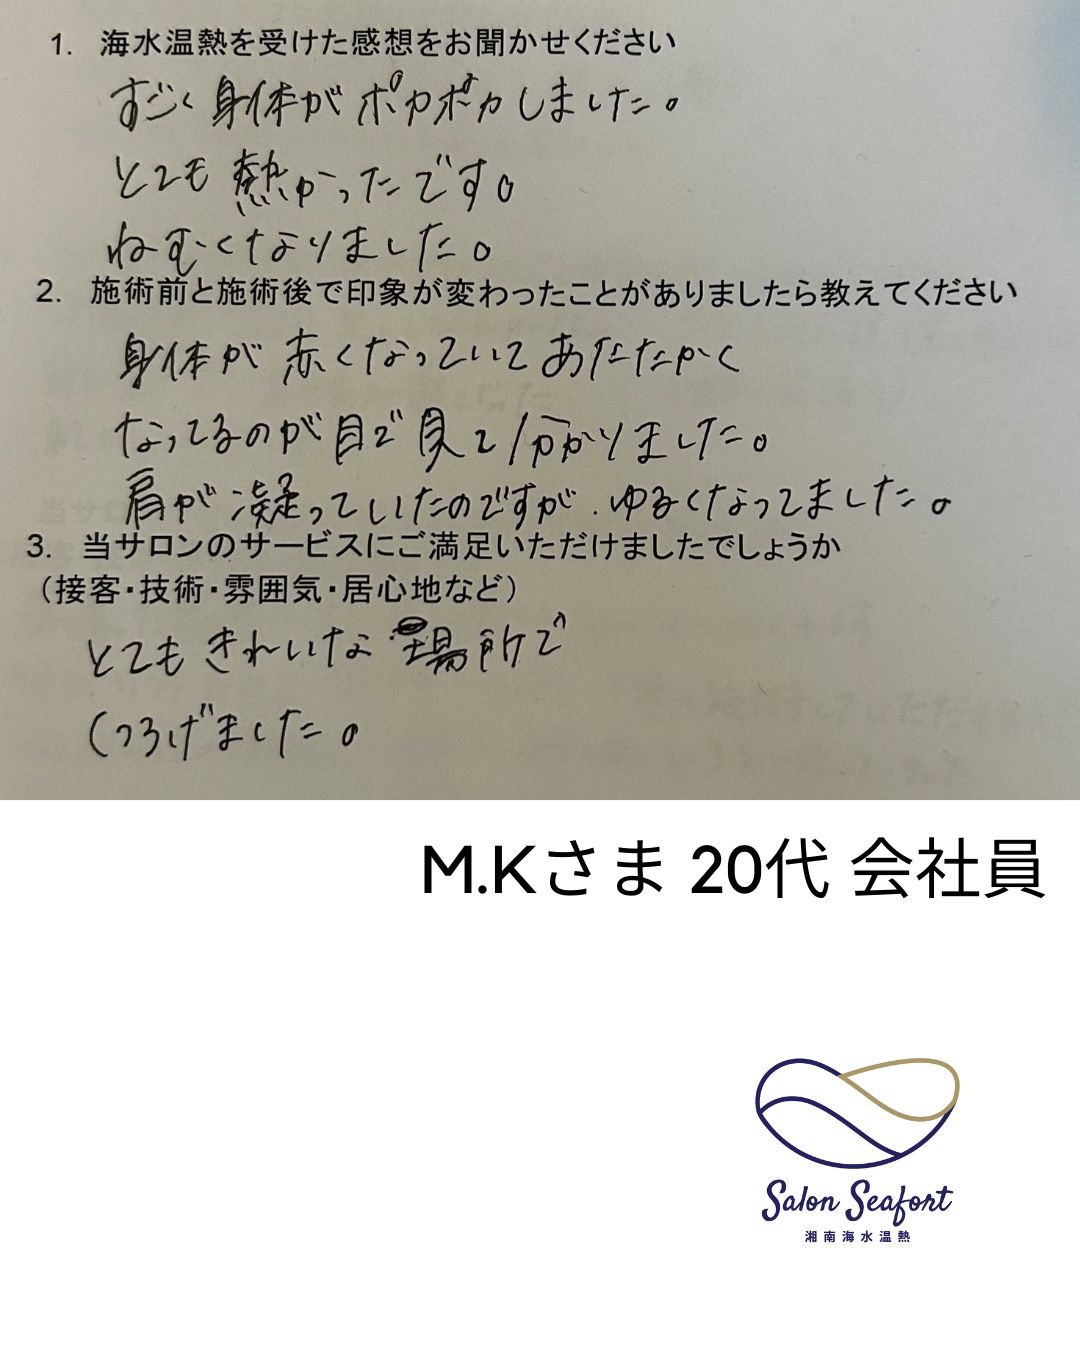 1. 海水温熱を受けた感想をお聞かせください
すごく身体がポカポカしました。
とても熱かったです。
ねむくなりました。
2. 施術前と施術後で印象が変わったことがありましたら教えてください
身体が赤くなっていてあたたかく
なってるのが目で見て分かりました。
肩が凝っていたのですが、ゆるくなってました。
3. 当サロンのサービスにご満足いただけましたでしょうか
（接客・技術・雰囲気・居心地など）
とてもきれいな場所で
くつろげました。
M.Kさま 20代 会社員
Salon Seafort
湘南海水温熱